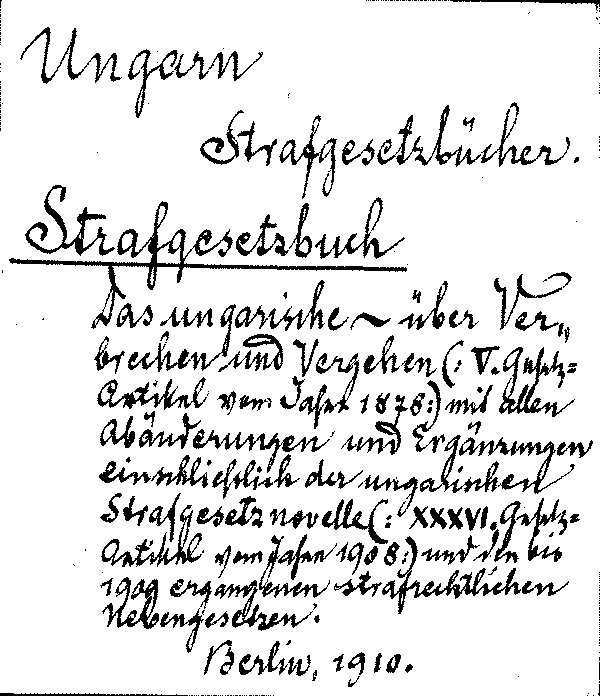 Ungarn
Strafgesetzbücher.
Strafgesetzbuch
Das ungarische ~ über Ver„
brechen und Vergehen (: V. Gesetz=
Artikel vom Jahre 1878:) mit allen
Abänderungen und Ergänzungen
einschließlich der ungarischen
Strafgesetznovelle (: XXXVI. Gesetz=
Artikel vom Jahre 1908:) und den bis
1909 ergangenen strafrechtlichen
Nebengesetzen.
Berlin, 1910.